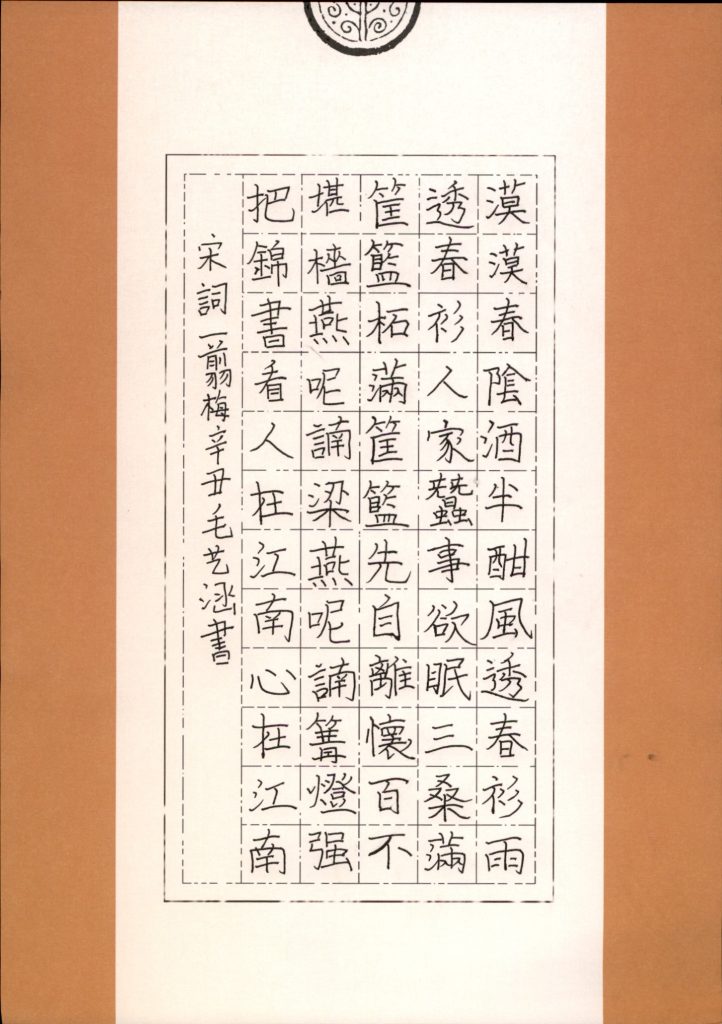 漠漠春陰酒半酣風透春衫雨
透春衫人家蠶事欲眠三桑滿
筐籃柘滿筐籃先自離懷百不
堪檣燕呢諵梁燕呢諵篝燈强
把錦書看人在江南心在江南
宋詞一翦梅辛丑毛艺涵書